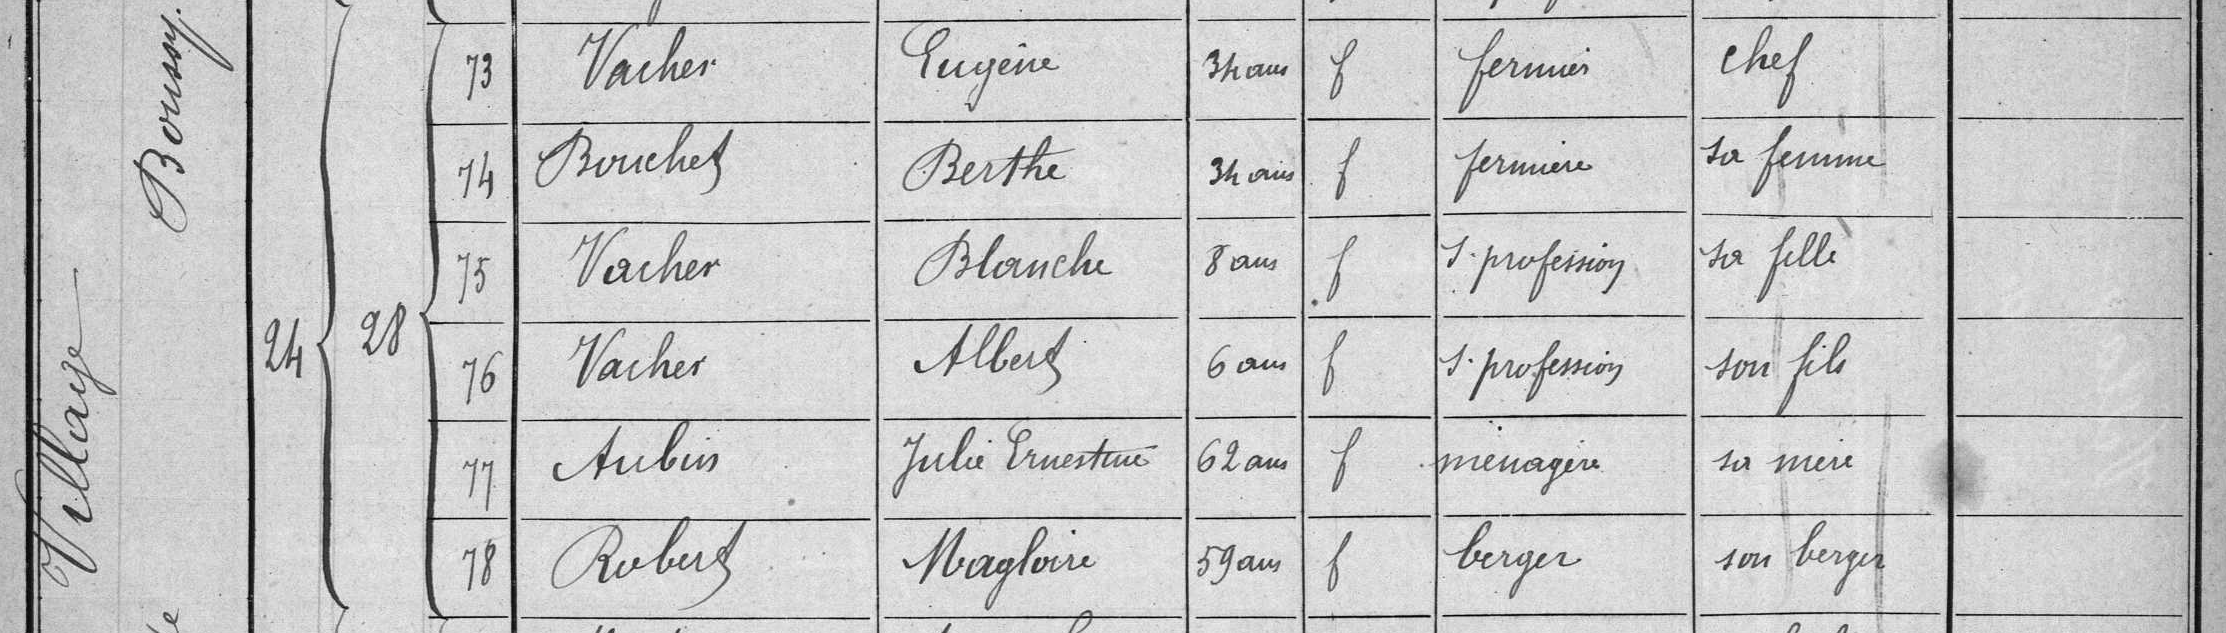 Village
Boussy.
24 28
73 Vacher Eugène 34 ans f fermier chef
74 Bouchet Berthe 34 ans f fermière sa femme
75 Vacher Blanche 8 ans f S. profession sa fille
76 Vacher Albert 6 ans f S. profession son fils
77 Aubin Julie Ernestine 62 ans f ménagère sa mère
78 Robert Magloire 59 ans f berger son berger